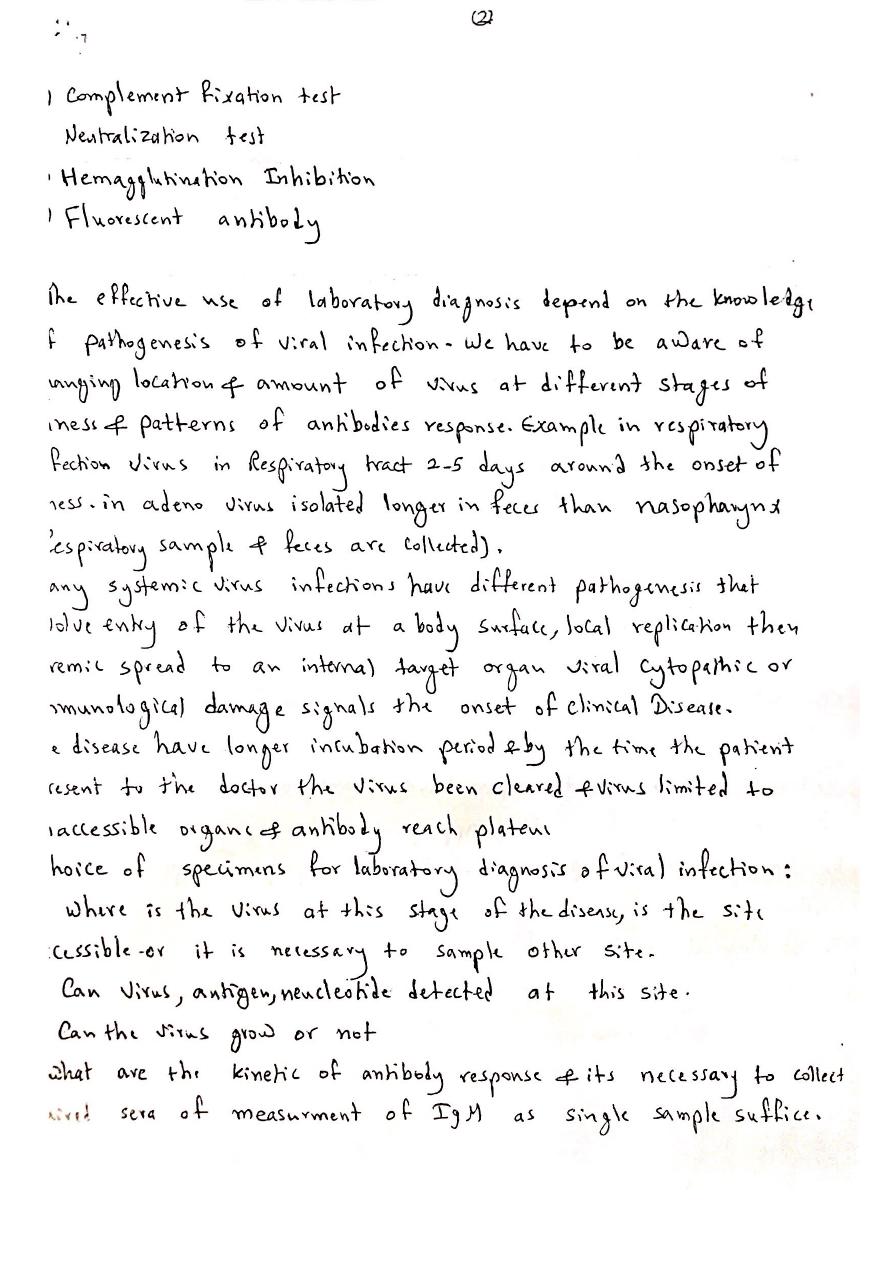 (2)
) Complement fixation test
Neutralization test
' Hemagglutination Inhibition
) Fluorescent antibody
The effective use of laboratory diagnosis depend on the knowledge
f pathogenesis of viral infection - We have to be aware of
anging location & amount of virus at different stages of
lness & patterns of antibodies response. Example in respiratory
fection Virus in Respiratory tract 2-5 days around the onset of
ness. in adeno virus isolated longer in feces than nasopharynx
respiratory sample & feces are collected).
any systemic virus infections have different pathogenesis that
volve entry of the virus at a body surface, local replication then
remic spread to an internal target organ viral cytopathic or
mmunological damage signals the onset of clinical Disease.
e disease have longer incubation period & by the time the patient
resent to the doctor the virus been cleared & virus limited to
naccessible organs & antibody reach plateu
hoice of specimens for laboratory diagnosis of viral infection :
Where is the virus at this stage of the disease, is the site
ccessible -or it is necessary to sample other site.
Can Virus, antigen, neucleotide detected at this site.
Can the virus grow or not
What are the kinetic of antibody response & its necessary to collect
sera of measurment of IgM as single sample suffice.